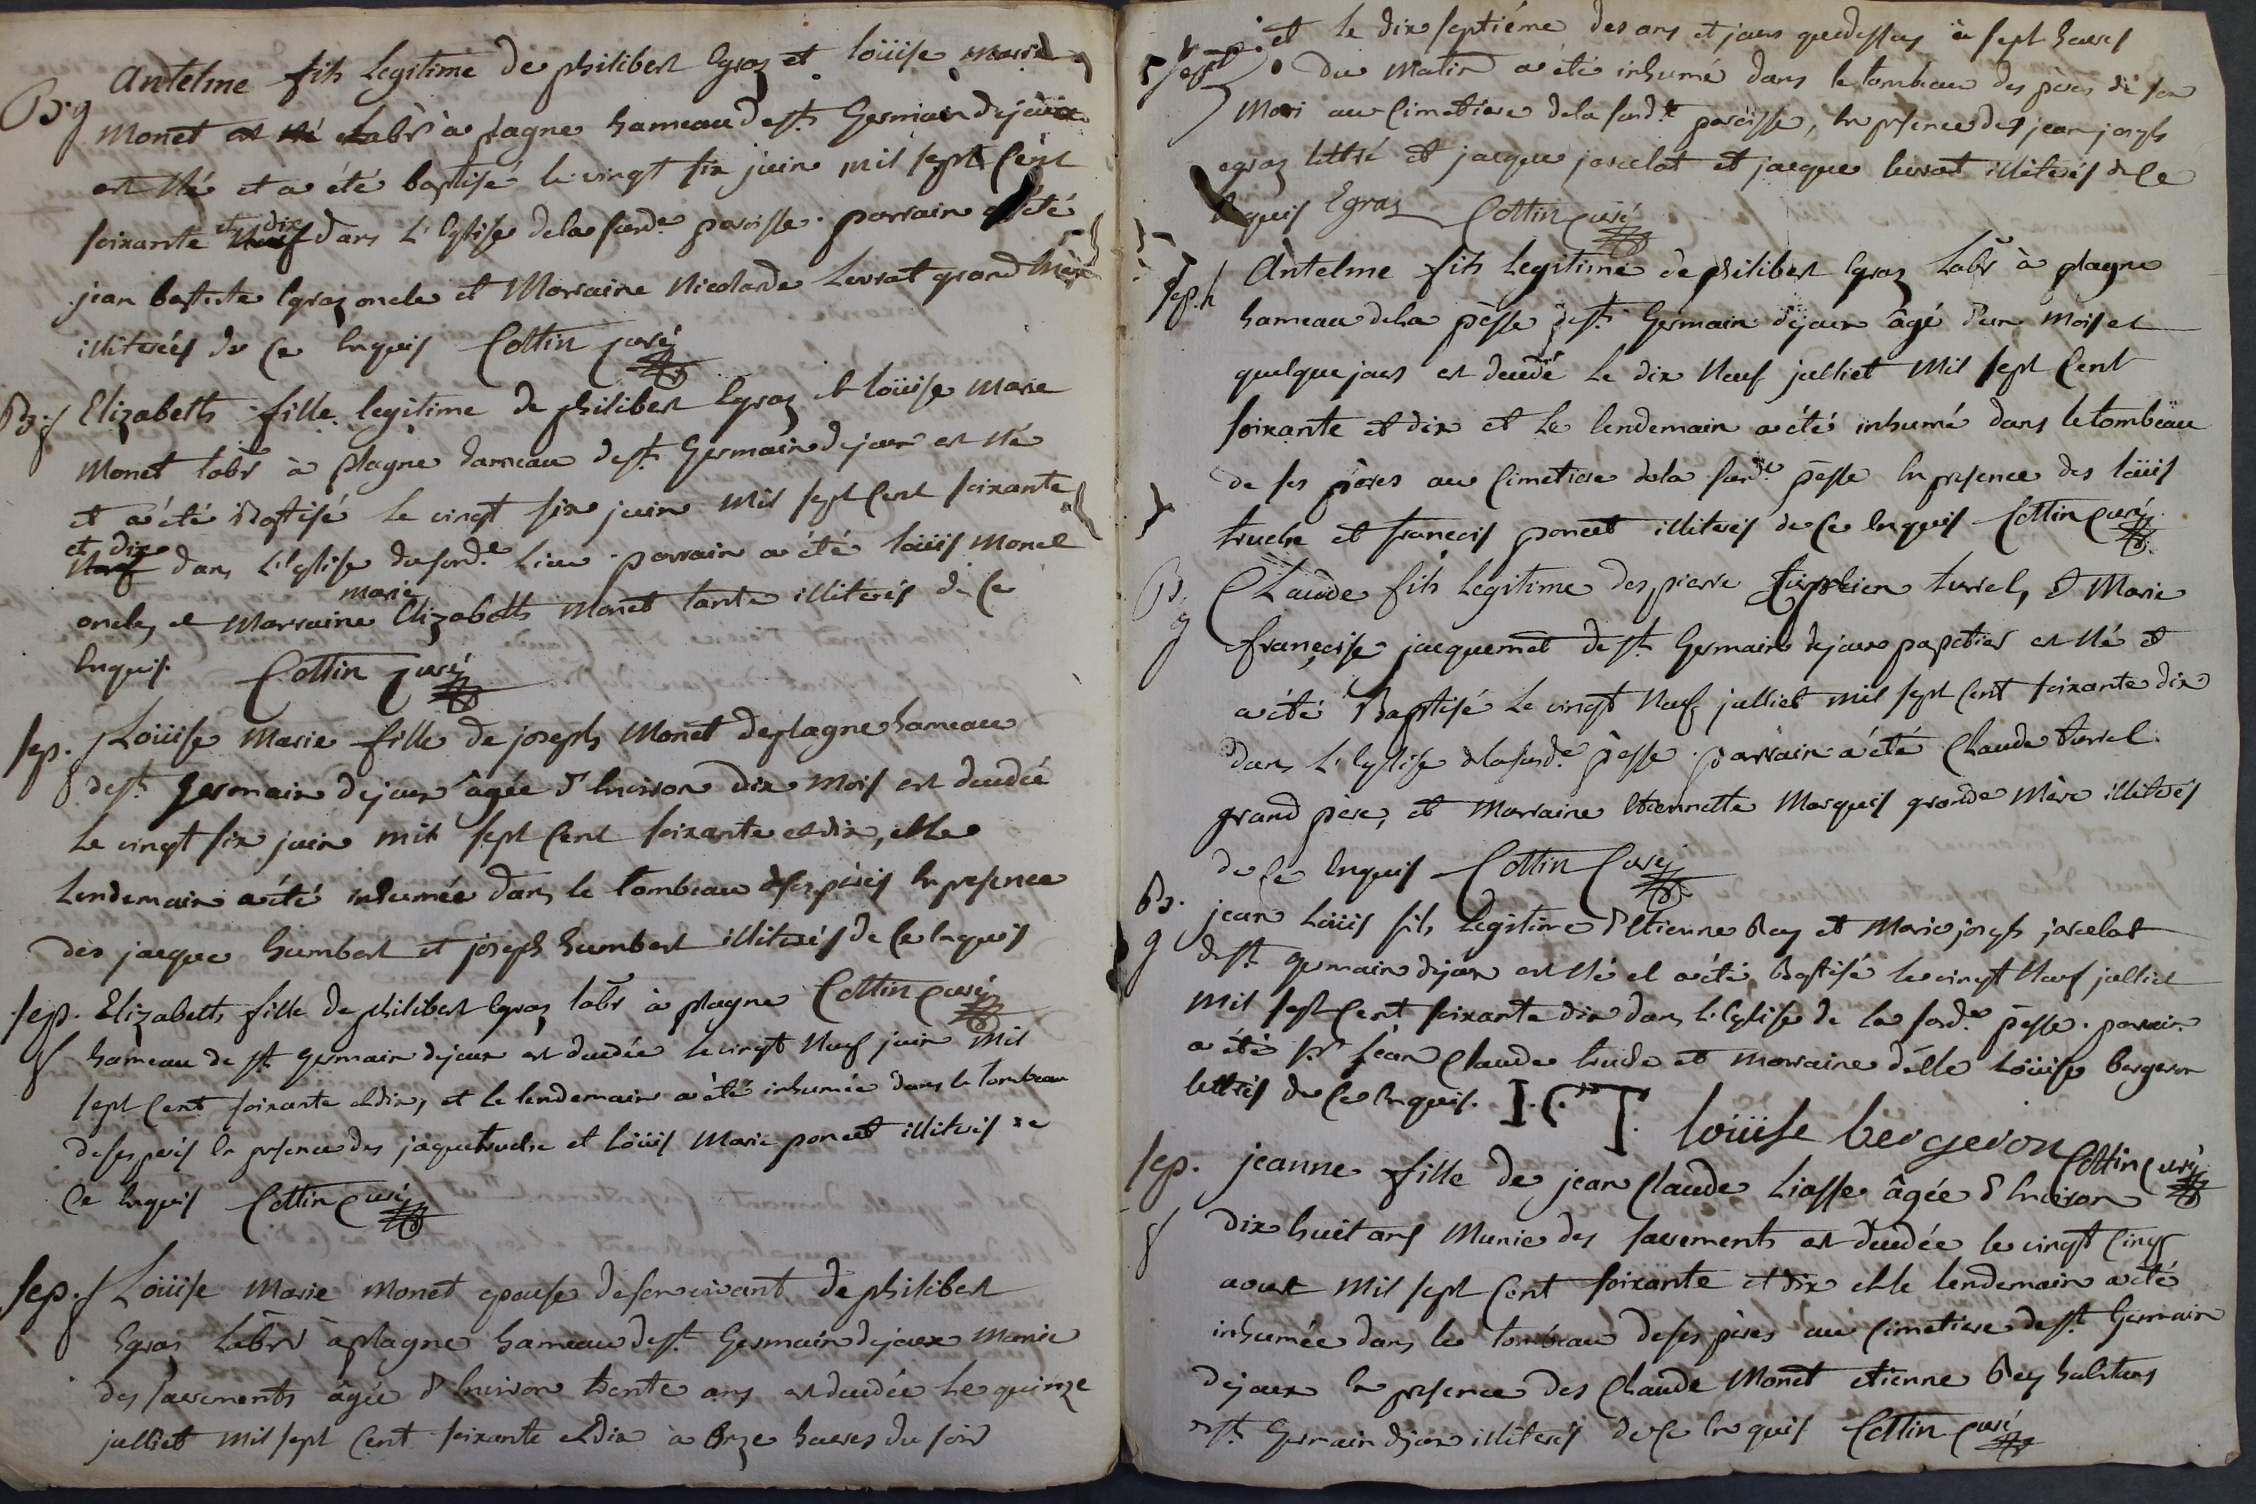 Bg Antelme fils legitime de philibert Egraz et loüise marie
Monet est né Labr à plagne hameau de st Germain dejoux
est né et a été baptisé le vingt six juin mil sept Cent
soixante et dix neuf dans L'Eglise de la surde paroisse. parrain a été
jean baptiste Egraz oncle et Marraine Nicolarde Levrat grand Mère
illiterés de Ce Enquis Cottin Curé
Bg Elizabeth fille legitime de philibert Egraz et loüise marie
Monet labr à plagne hameau de st Germain dejoux est née
et a été Baptisé le vingt six juin mil sept Cent soixante
et dix
neuf dans L'Eglise du surd lieu parrain a été loüis Monet
marie
oncle, et Marraine Elizabeth Monet tante illiterés de Ce
Enquis. Cottin Curé
sep. Loüise Marie fille de joseph Monet de plagne hameau
g de st Germain dejoux âgée d'Environ dix mois est decedée
le vingt six juin mil sept Cent soixante et dix, et le
Lendemain a été inhumée dans le tombeau de ses pères En presence
des jacque humbert et joseph humbert illiterés de Ce Enquis
sep. Elizabeth fille de philibert Egraz labr à plagne Cottin Curé
g hameau de st Germain dejoux est decedée le vingt Neuf juin mil
sept Cent soixante et dix, et le lendemain a été inhumée dans le tombeau
de ses pères En presence des jaque truche et loüis Marie poncet illiterés de
Ce Enquis Cottin Curé
sep. g Loüise Marie Monet epouse de son vivant de philibert
Egraz Labr à plagne hameau de st Germain dejoux Munie
des sacrements âgée d'Environ trente ans est decedée Le quinze
julliet mil sept Cent soixante et dix à Onze heures du soir
et le dix septiéme des ans et jours que dessus à sept heures
du Matin a été inhumé dans le tombeau des pères de son
Mari au Cimetiere de la surde paroisse, En presence des jean joseph
egraz lettré et jacque jarcelat et jacque levrat illiterés de Ce
Enquis Egraz Cottin Curé
sep. g Antelme fils legitime de philibert Egraz Labr à plagne
hameau de la pèsse de st Germain dejoux âgé d'un Mois et
quelque jours est decedé Le dix Neuf julliet Mil sept Cent
soixante et dix et Le lendemain a été inhumé dans le tombeau
de ses pères au Cimetiere de la surde pèsse En presence des loüis
truche et francois poncet illiterés de Ce Enquis Cottin Curé
B. Claude fils legitime des pierre turrel, et Marie
g françoise jacquemet de st Germain dejoux papetier est Né et
a été Baptisé Le vingt Neuf julliet mil sept Cent soixante dix
dans L'Eglise de la surde pèsse parrain a été Claude turrel
grand père, et Marraine Etiennette Marquis grande Mère illiterés
de Ce Enquis Cottin Curé
B. jean Loüis fils Legitime d'Etienne Bey et Marie joseph jarcelat
g de st germain dejoux est Né et a été Baptisé le vingt Neuf julliet
mil sept Cent soixante dix dans L'Eglise de la surde pèsse. parrain
a été sr jean Claude trude et Marraine délle Loüise bergeron
lettrés de Ce Enquis. I. C. T. loüise bergeron Cottin Curé
sep. jeanne fille de jean Claude Liasse âgée d'Environ
g dix huit ans Munie des sacrements est decedée le vingt Cinq
aoust mil sept Cent soixante et dix et le lendemain a été
inhumée dans le tombeau de ses pères au Cimetiere de st Germain
dejoux En presence des Claude Monet etienne Bey habitans
de st Germain dejoux illiterés de Ce Enquis Cottin Curé